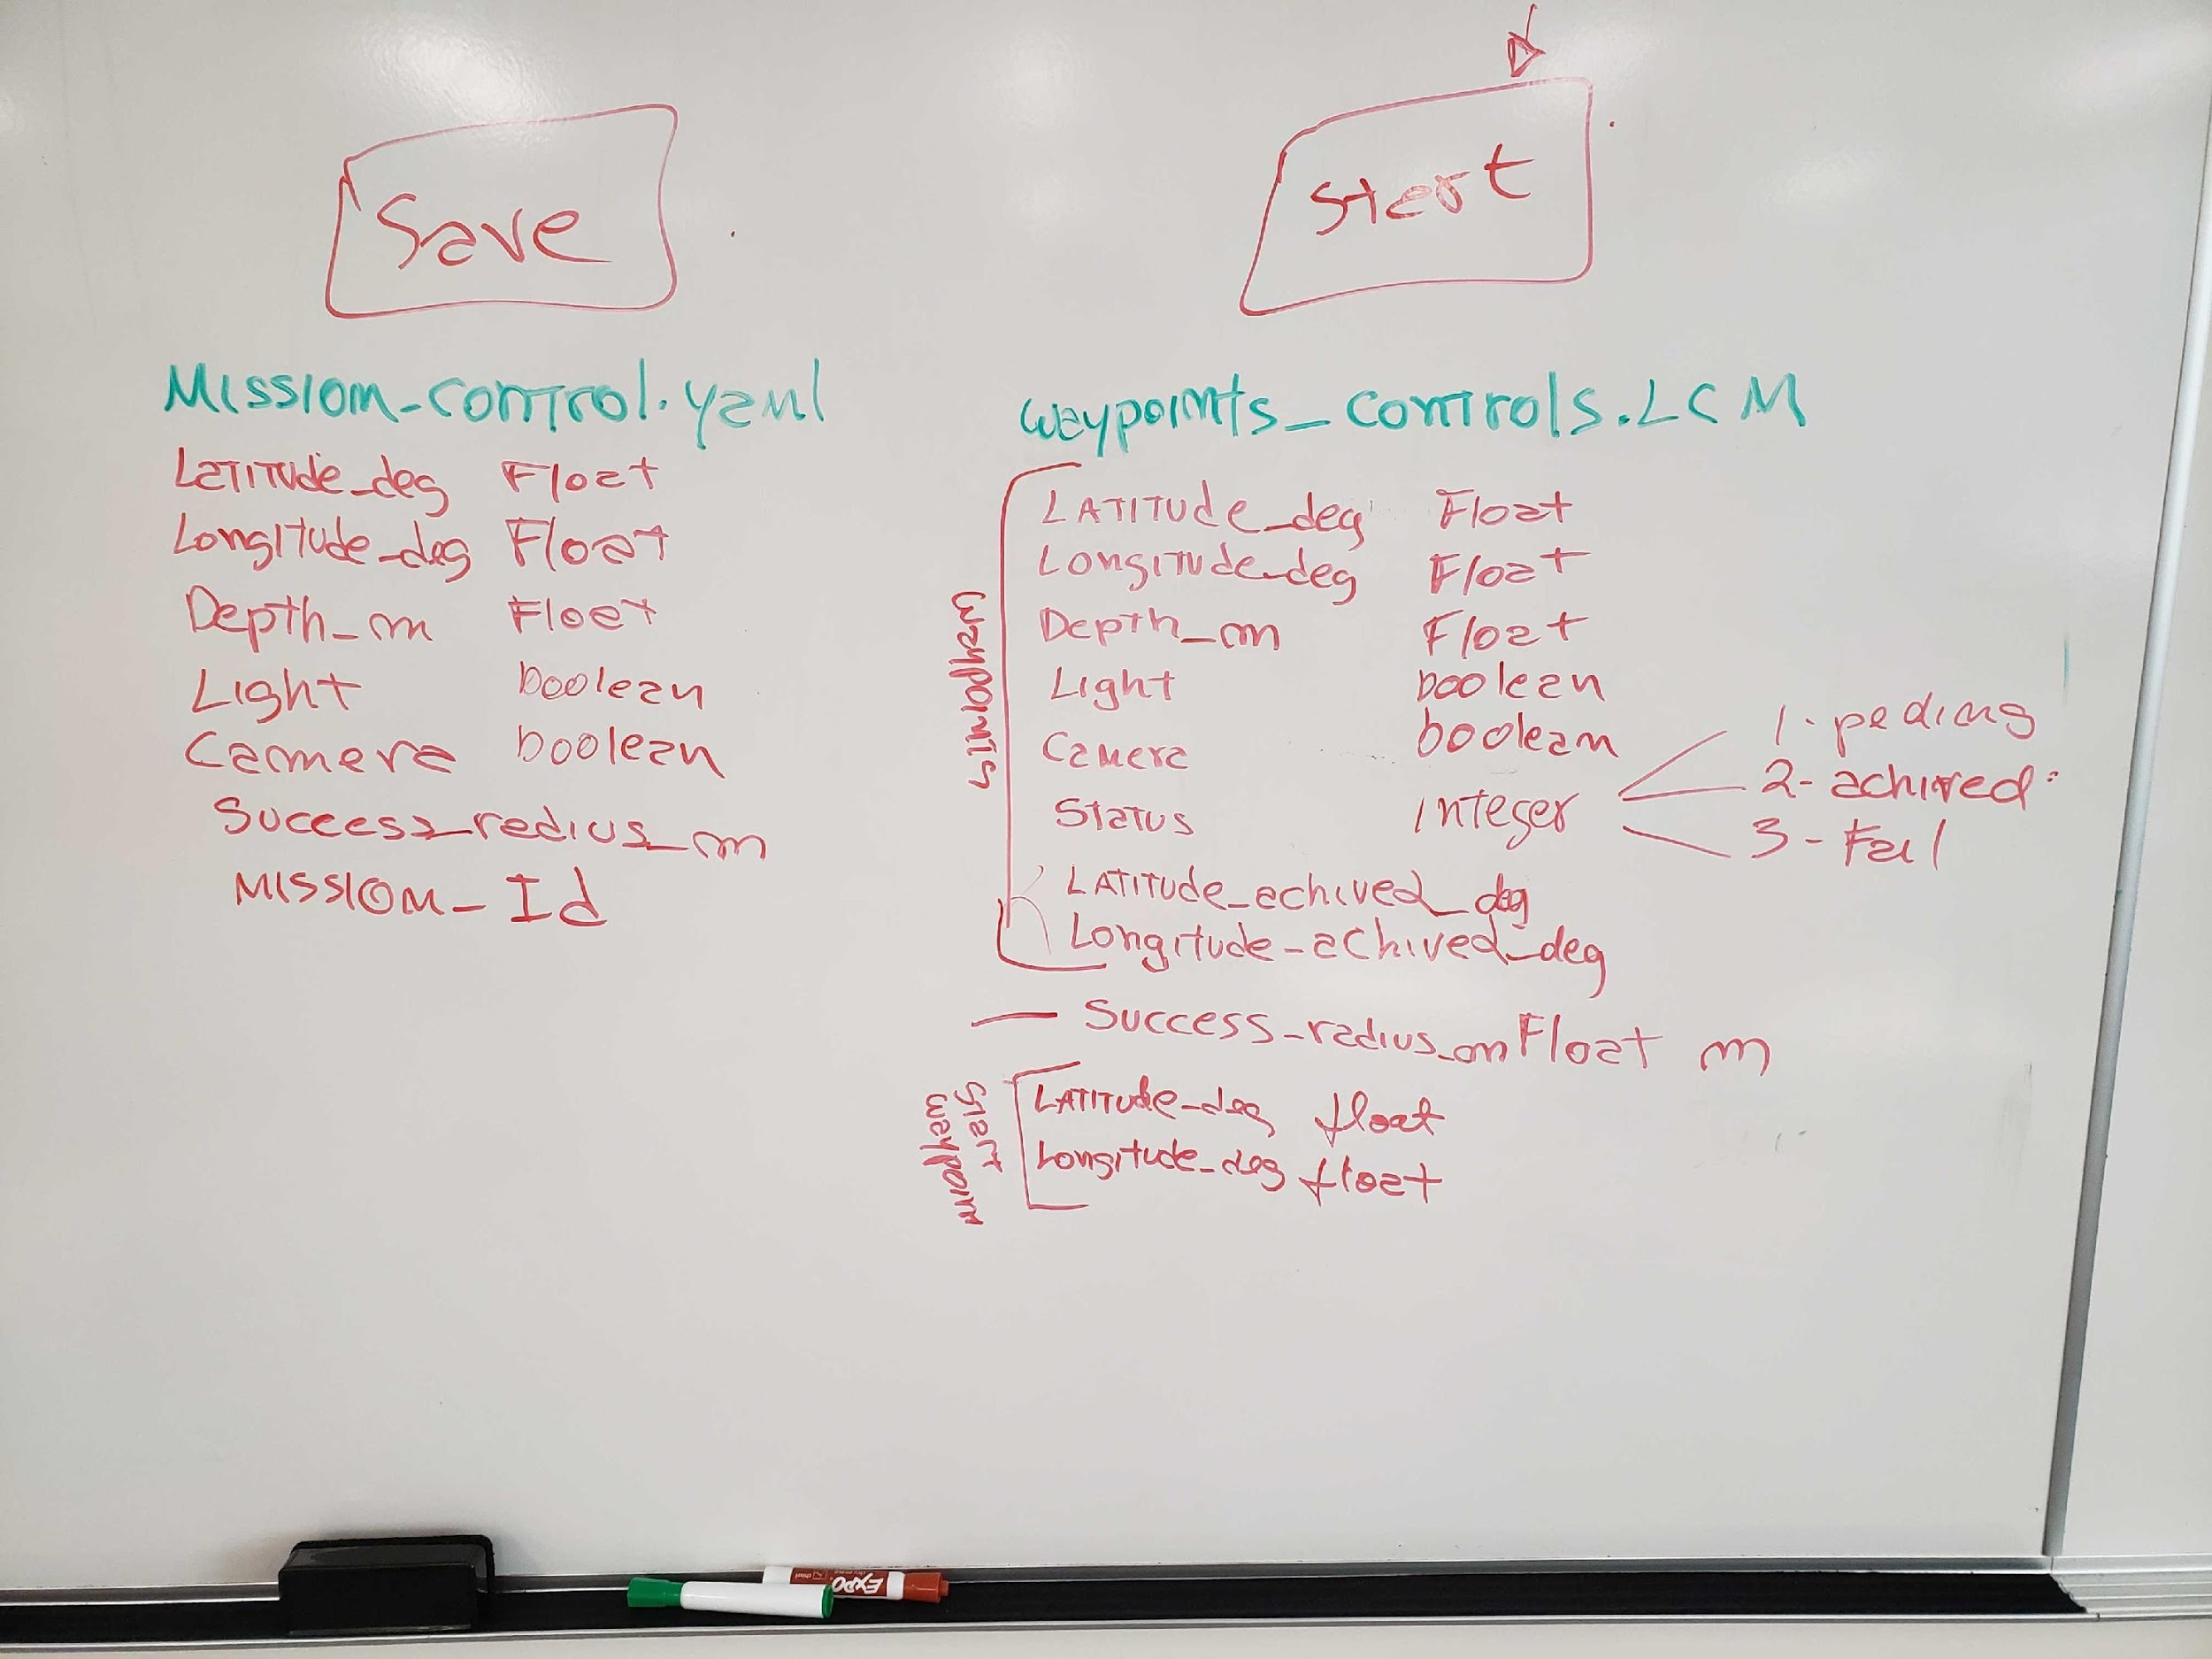 Save
Mission_control.yaml
Latitude_deg Float
Longitude_deg Float
Depth_m Float
Light boolean
Camera boolean
Success_radius_m
Mission_Id
Start
waypoints_controls.LCM
waypoints
LATITUde_deg Float
Longitude_deg Float
Depth_m Float
Light boolean
Camera boolean
Status Integer
1-peding
2-achived
3-Fail
LATITUde_achived_deg
Longitude_achived_deg
Success_radius_m Float m
Start waypoint
LATITUde_deg float
Longitude_deg float
EXPO